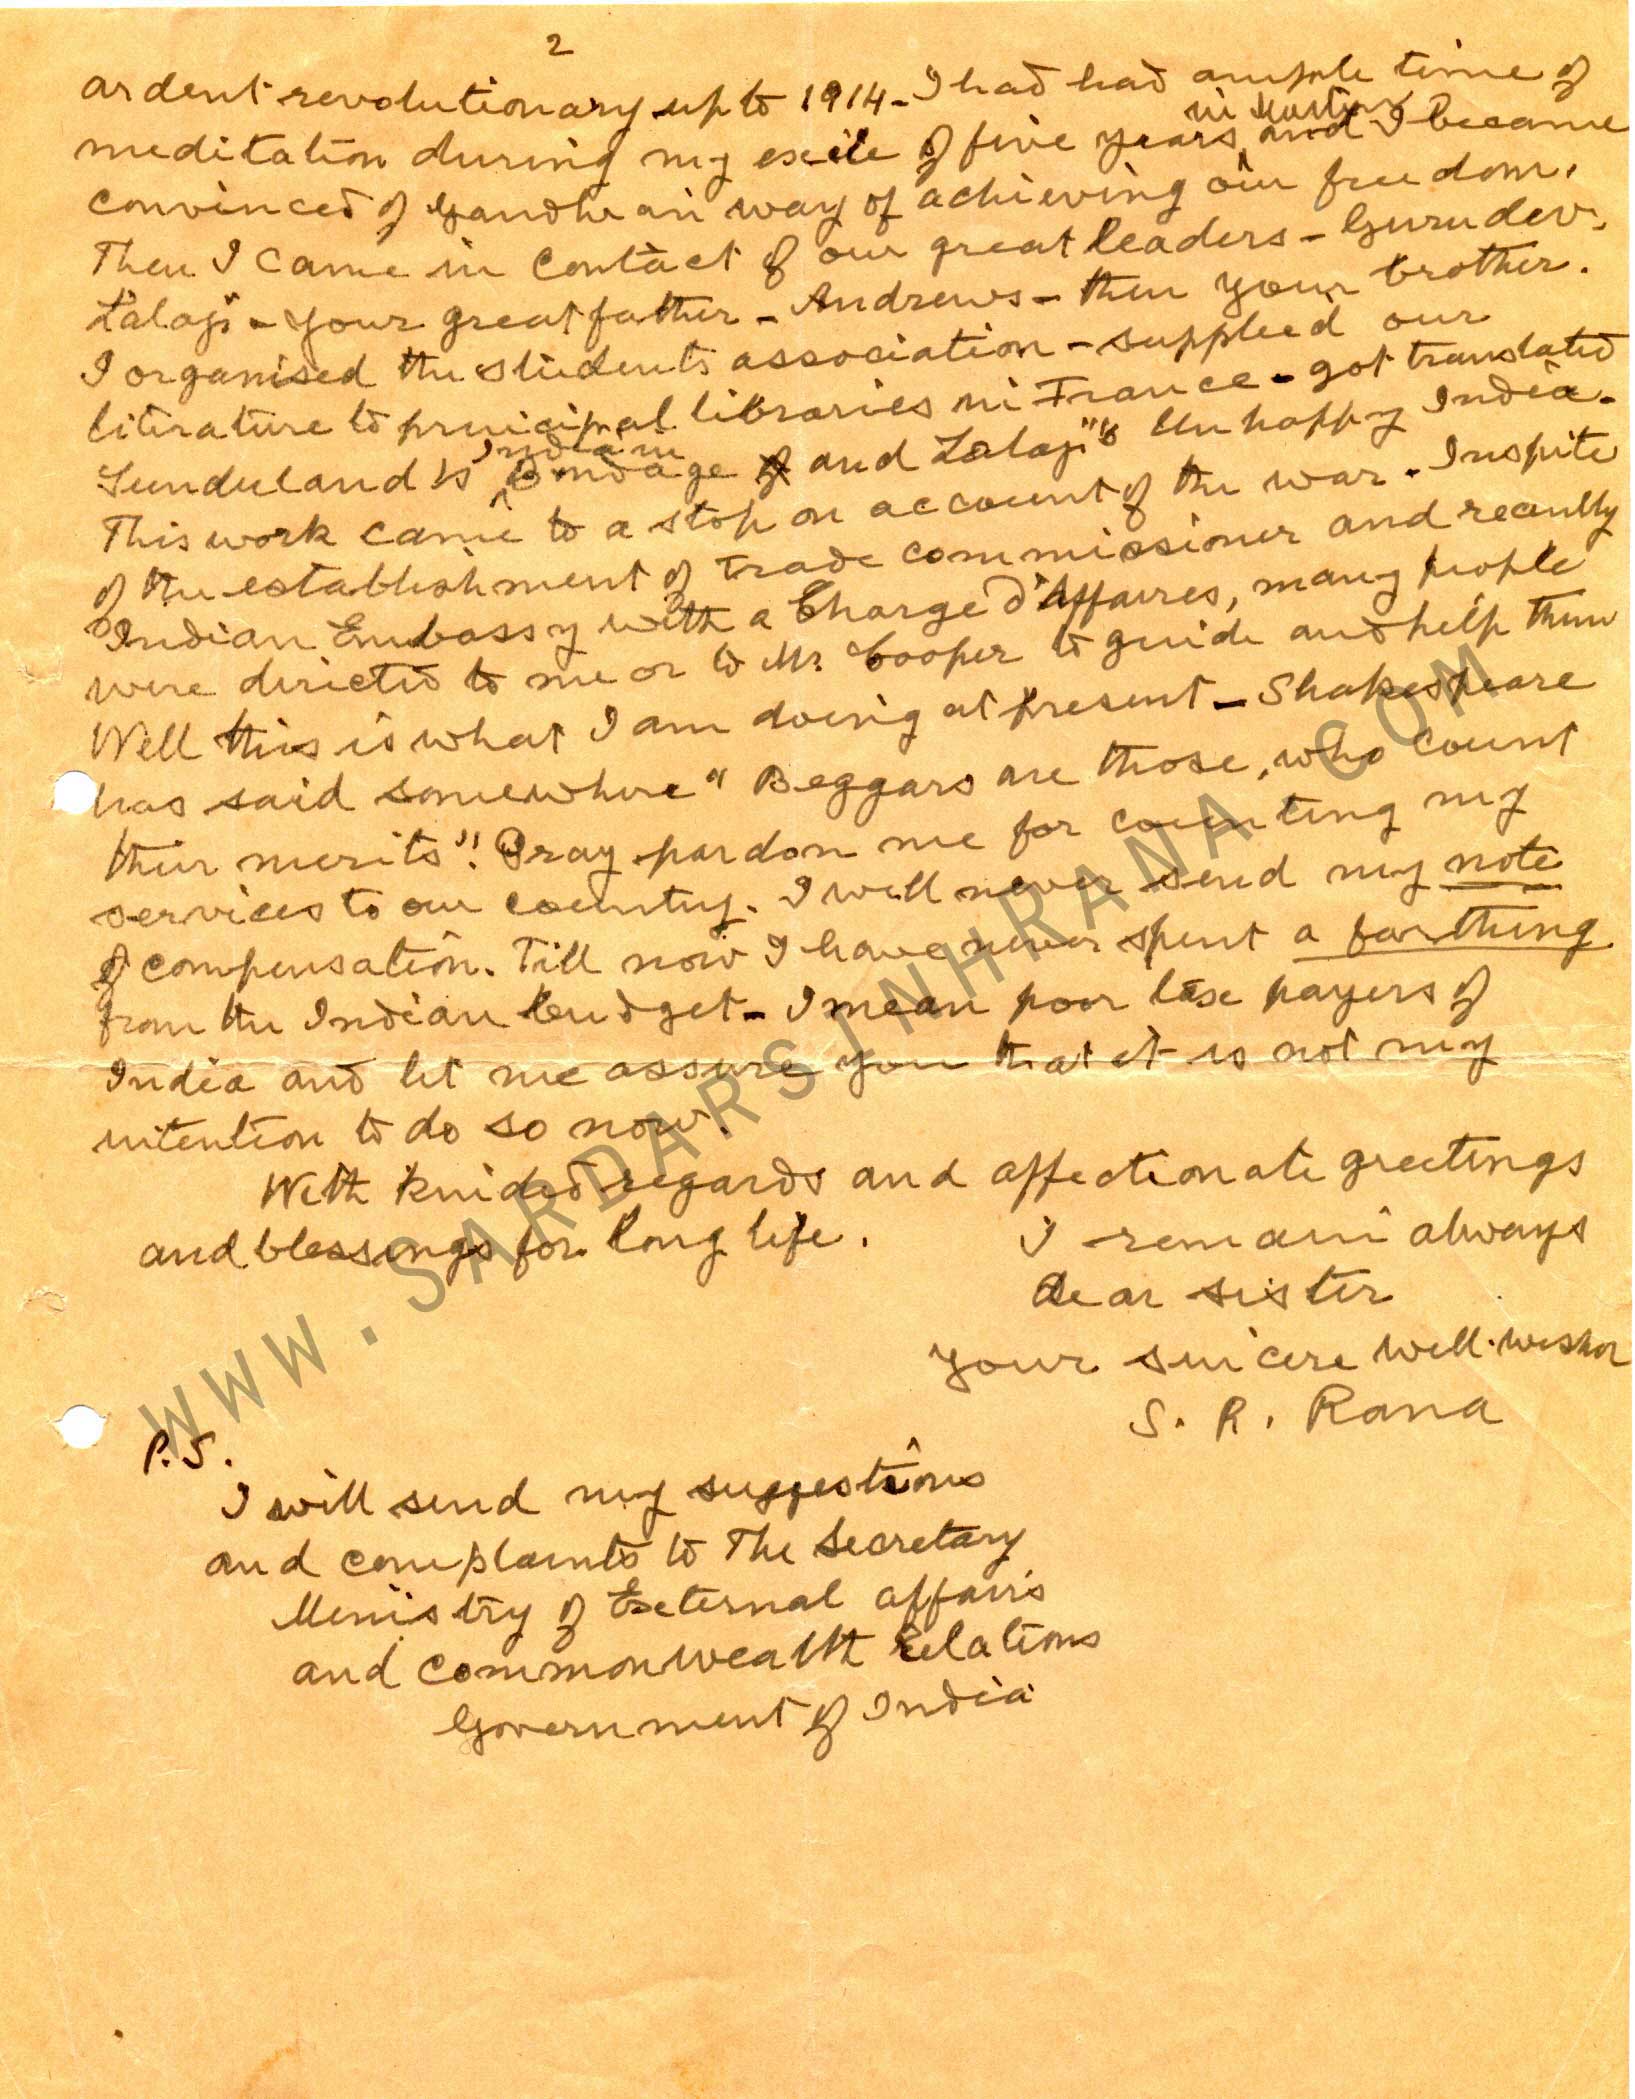 2
ardent revolutionary up to 1914 - I had had ample time of
meditation during my exile of five years in Martinic and I became
convinced of Gandhean way of achieving our freedom.
Then I came in contact of our great leaders - Gurudev.
Lalaji - your great father - Andrews - then your brother.
I organised the students association - supplied our
literature to principal libraries in France - got translated
Sunderland's Indian Bondage and Lalaji's Unhappy India.
This work came to a stop on account of the war. Inspite
of the establishment of trade commissioner and recently
Indian Embassy with a Charge d'Affaires, many people
were directed to me or to Mr. Cooper to guide and help them
Well this is what I am doing at present - Shakespeare
has said somewhere "Beggars are those, who count
their merits"! Pray pardon me for counting my
services to our country. I will never send my note
of compensation. Till now I have never spent a farthing
from the Indian budget - I mean poor tax payers of
India and let me assure you that it is not my
intention to do so now.
With kinded regards and affectionate greetings
and blessings for long life.
I remain always
dear sister
your sincere well-wisher
S. R. Rana
P.S.
I will send my suggestions
and complaints to The Secretary
Ministry of External affairs
and commonwealth relations
Government of India
WWW.SARDARSINHRANA.COM